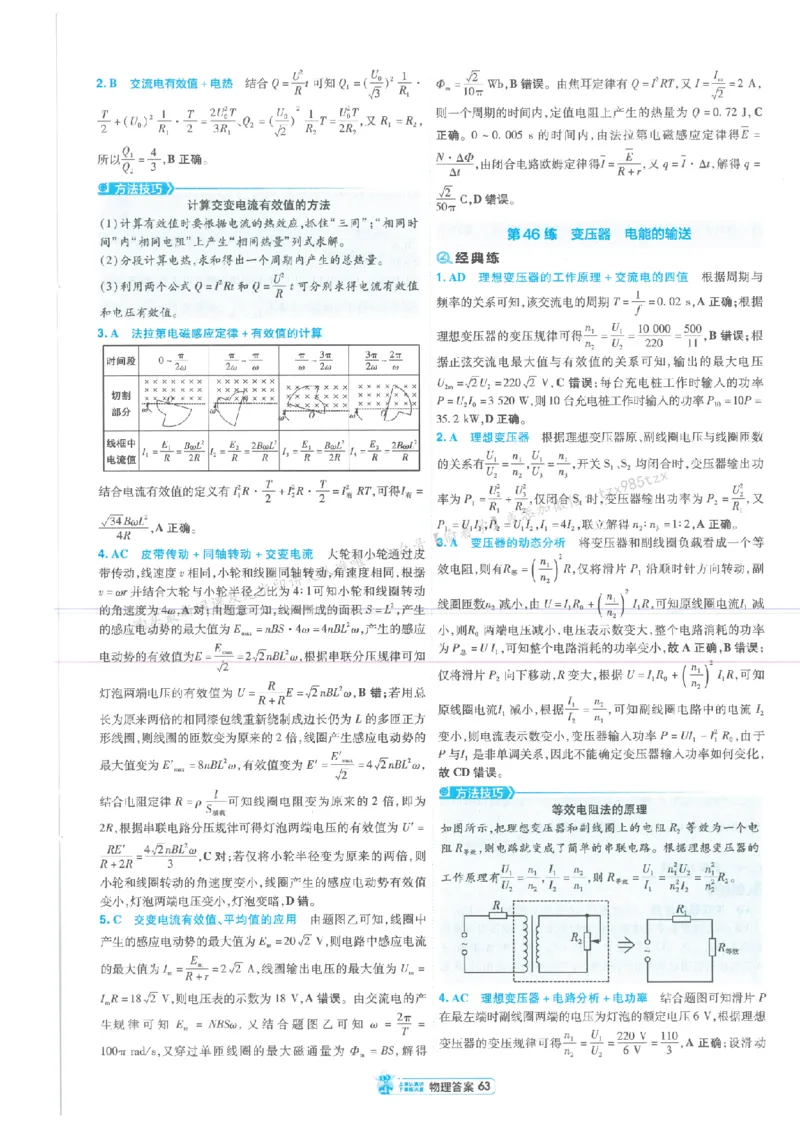 2.B 交流电有效值+电热 结合 Q=\frac{U^2}{R}t 可知 Q_1=(\frac{U_0}{\sqrt{3}})^2\frac{1}{R_1}·
\frac{T}{2}+(U_0)^2\frac{1}{R_1}·\frac{T}{2}=\frac{2U_0^2T}{3R_1}、Q_2=(\frac{U_0}{\sqrt{2}})^2\frac{1}{R_2}T=\frac{U_0^2T}{2R_2},又 R_1=R_2,
所以\frac{Q_1}{Q_2}=\frac{4}{3},B 正确。
方法技巧
计算交变电流有效值的方法
(1)计算有效值时要根据电流的热效应,抓住“三同”:“相同时
间”内“相同电阻”上产生“相同热量”列式求解。
(2)分段计算电热,求和得出一个周期内产生的总热量。
(3)利用两个公式 Q=I^2Rt 和 Q=\frac{U^2}{R}t 可分别求得电流有效值
和电压有效值。
3.A 法拉第电磁感应定律+有效值的计算
时间段 0~\frac{π}{2ω} \frac{π}{2ω}~\frac{π}{ω} \frac{π}{ω}~\frac{3π}{2ω} \frac{3π}{2ω}~\frac{2π}{ω}
切割
部分
线框中
电流值 I_1=\frac{E_1}{R}=\frac{B_0ωL^2}{2R} I_2=\frac{E_2}{R}=\frac{2B_0ωL^2}{2R} I_3=\frac{E_1}{R}=\frac{B_0ωL^2}{2R} I_4=\frac{E_2}{R}=\frac{2B_0ωL^2}{2R}
结合电流有效值的定义有 I_1^2R·\frac{T}{2}+I_2^2R·\frac{T}{2}=I_有^2RT,可得 I_有=
\frac{\sqrt{34}B_0ωL^2}{4R},A 正确。
4.AC 皮带传动+同轴转动+交变电流 大轮和小轮通过皮
带传动,线速度 v 相同,小轮和线圈同轴转动,角速度相同,根据
v=ωr 并结合大轮与小轮半径之比为 4:1 可知小轮和线圈转动
的角速度为 4ω,A 对;由题意可知,线圈围成的面积 S=L^2,产生
的感应电动势的最大值为 E_max=nBS·4ω=4nBL^2ω,产生的感应
电动势的有效值为 E=\frac{E_max}{\sqrt{2}}=2\sqrt{2}nBL^2ω,根据串联分压规律可知
灯泡两端电压的有效值为 U=\frac{R}{R+R}E=\sqrt{2}nBL^2ω,B 错;若用总
长为原来两倍的相同漆包线重新绕制成边长仍为 L 的多匝正方
形线圈,则线圈的匝数变为原来的 2 倍,线圈产生感应电动势的
最大值变为 E'_max=8nBL^2ω,有效值变为 E'=\frac{E'_max}{\sqrt{2}}=4\sqrt{2}nBL^2ω,
结合电阻定律 R=ρ\frac{l}{S_横截}可知线圈电阻变为原来的 2 倍,即为
2R,根据串联电路分压规律可得灯泡两端电压的有效值为 U'=
\frac{RE'}{R+2R}=\frac{4\sqrt{2}nBL^2ω}{3},C 对;若仅将小轮半径变为原来的两倍,则
小轮和线圈转动的角速度变小,线圈产生的感应电动势有效值
变小,灯泡两端电压变小,灯泡变暗,D 错。
5.C 交变电流有效值、平均值的应用 由题图乙可知,线圈中
产生的感应电动势的最大值为 E_m=20\sqrt{2} V,则电路中感应电流
的最大值为 I_m=\frac{E_m}{R+r}=2\sqrt{2} A,线圈输出电压的最大值为 U_m=
I_mR=18\sqrt{2} V,则电压表的示数为 18 V,A 错误。由交流电的产
生规律可知 E_m=NBSω,又结合题图乙可知 ω=\frac{2π}{T}=
100π rad/s,又穿过单匝线圈的最大磁通量为 Φ_m=BS,解得
Φ_m=\frac{\sqrt{2}}{10π} Wb,B 错误。由焦耳定律有 Q=I^2RT,又 I=\frac{I_m}{\sqrt{2}}=2 A,
则一个周期的时间内,定值电阻上产生的热量为 Q=0.72 J,C
正确。0~0.005 s 的时间内,由法拉第电磁感应定律得 \overline{E}=
\frac{N·ΔΦ}{Δt},由闭合电路欧姆定律得 \overline{I}=\frac{\overline{E}}{R+r},又 q=\overline{I}·Δt,解得 q=
\frac{\sqrt{2}}{50π} C,D 错误。
第 46 练 变压器 电能的输送
经典练
1.AD 理想变压器的工作原理+交流电的四值 根据周期与
频率的关系可知,该交流电的周期 T=\frac{1}{f}=0.02 s,A 正确;根据
理想变压器的变压规律可得\frac{n_1}{n_2}=\frac{U_1}{U_2}=\frac{10 000}{220}=\frac{500}{11},B 错误;根
据正弦交流电最大值与有效值的关系可知,输出的最大电压
U_{2m}=\sqrt{2}U_2=220\sqrt{2} V,C 错误;每台充电桩工作时输入的功率
P=U_2I_0=3 520 W,则 10 台充电桩工作时输入的功率 P_{10}=10P=
35.2 kW,D 正确。
2.A 理想变压器 根据理想变压器原、副线圈电压与线圈匝数
的关系有\frac{U_1}{U_2}=\frac{n_1}{n_2},\frac{U_1}{U_3}=\frac{n_1}{n_3},开关 S_1、S_2 均闭合时,变压器输出功
率为 P_1=\frac{U_2^2}{R_1}+\frac{U_3^2}{R_2},仅闭合 S_1 时,变压器输出功率为 P_2=\frac{U_2^2}{R_1},又
P_1=U_1I_1,P_2=U_1I_2,I_1=4I_2,联立解得 n_2:n_3=1:2,A 正确。
3.A 变压器的动态分析 将变压器和副线圈负载看成一个等
效电阻,则有 R_等=(\frac{n_1}{n_2})^2R,仅将滑片 P_1 沿顺时针方向转动,副
线圈匝数 n_2 减小,由 U=I_1R_0+(\frac{n_1}{n_2})^2I_1R,可知原线圈电流 I_1 减
小,则 R_0 两端电压减小,电压表示数变大,整个电路消耗的功率
为 P_总=UI_1,可知整个电路消耗的功率变小,故 A 正确,B 错误;
仅将滑片 P_2 向下移动,R 变大,根据 U=I_1R_0+(\frac{n_1}{n_2})^2I_1R,可知
原线圈电流 I_1 减小,根据\frac{I_1}{I_2}=\frac{n_2}{n_1},可知副线圈电路中的电流 I_2
变小,则电流表示数变小,变压器输入功率 P=UI_1-I_1^2R_0,由于
P 与 I_1 是非单调关系,因此不能确定变压器输入功率如何变化,
故 CD 错误。
方法技巧
等效电阻法的原理
如图所示,把理想变压器和副线圈上的电阻 R_2 等效为一个电
阻 R_等效,则电路就变成了简单的串联电路。根据理想变压器的
工作原理有\frac{U_1}{U_2}=\frac{n_1}{n_2},\frac{I_1}{I_2}=\frac{n_2}{n_1},则 R_等效=\frac{U_1}{I_1}=\frac{n_1^2U_2}{n_2^2I_2}=\frac{n_1^2}{n_2^2}R_2。
R_1
R_2
R_1
R_等效
4.AC 理想变压器+电路分析+电功率 结合题图可知滑片 P
在最左端时副线圈两端的电压为灯泡的额定电压 6 V,根据理想
变压器的变压规律可得\frac{n_1}{n_2}=\frac{U_1}{U_2}=\frac{220 V}{6 V}=\frac{110}{3},A 正确;设滑动
物理答案 63